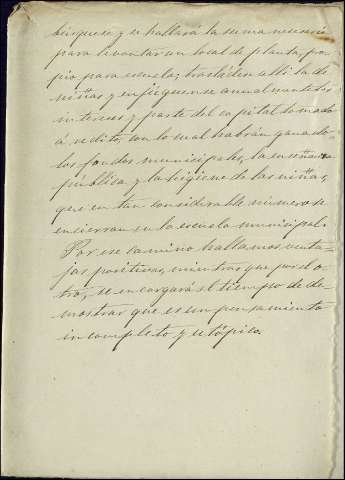 búsquese y se hallará la suma necesaria
para levantar un local de planta, pro
pio para escuela; trasládese allí la de
niñas y enjúguense anualmente los
intereses y parte del capital tomado
á rédito, con lo cual habrán ganado
los fondos municipales, la enseñanza
pública y la higiene de las niñas,
que en tan considerable número se
encierran en la escuela municipal.
Por ese camino hallamos venta
jas positivas, mientras que por el o
tro, se encargará el tiempo de de
mostrar que es un pensamiento
incompleto y utópico.